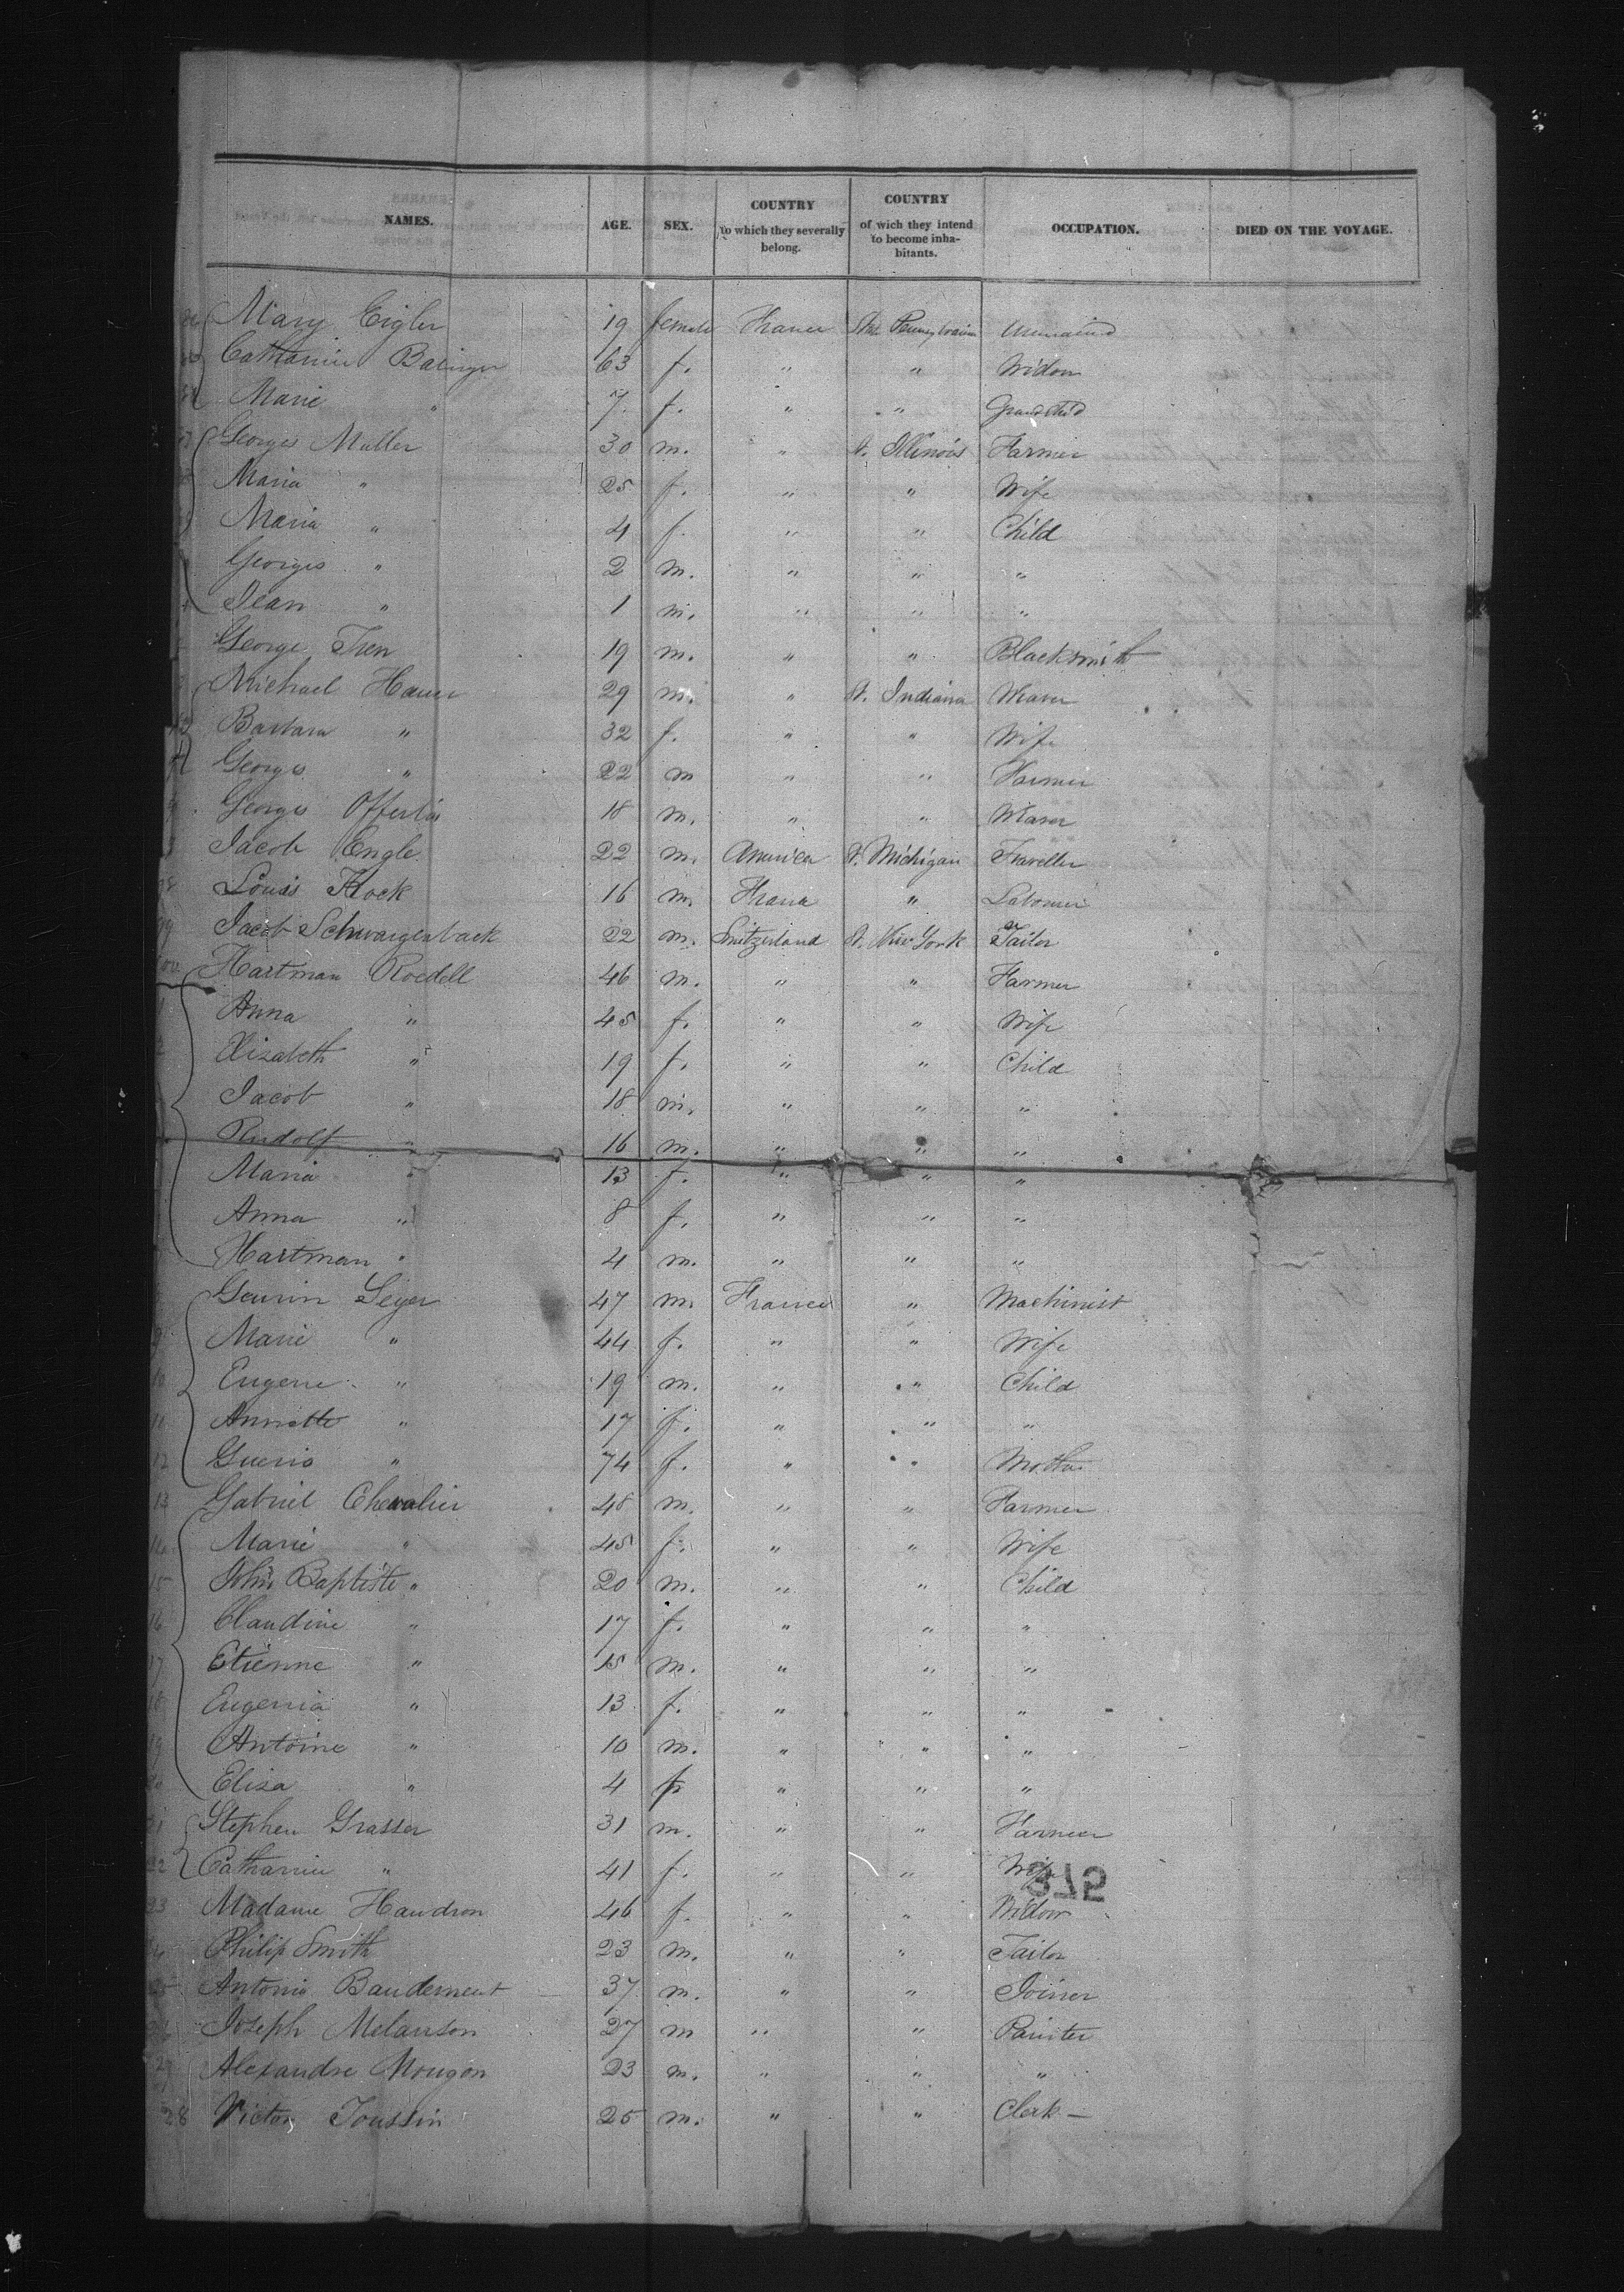 NAMES. AGE. SEX. COUNTRY to which they severally belong. COUNTRY of wich they intend to become inha-bitants. OCCUPATION. DIED ON THE VOYAGE.
Mary Eigler 19 female France Pennsylvania
Catharine 63 f. " " Widow
Marie " 7 f. " " Grandchild
Georges Muller 30 m. " St. Illinois Farmer
Maria " 25 f. " " Wife
Maria " 4 f. " " Child
Georges " 2 m. " " "
Jean " 1 m. " " "
George Tren 19 m. " " Blacksmith
Michael Hauer 29 m. " St. Indiana Weaver
Barbara " 32 f. " " Wife
Georges " 22 m " " Farmer
Georges 18 m. " " Weaver
Jacob Engle 22 m. America St. Michigan Traveller
Louis Kock 16 m. France " Labourer
Jacob 22 m. Switzerland St. New York Tailor
Hartman Roedell 46 m. " " Farmer
Anna " 45 f. " " Wife
Elizabeth " 19 f. " " Child
Jacob " 18 m. " " "
Rudolf " 16 m. " " "
Maria " 13 f. " " "
Anna " 8 f. " " "
Hartman " 4 m. " " "
Seyer 47 m. France " Machinist
Marie " 44 f. " " Wife
Eugene " 19 m. " " Child
Annette " 17 f. " " "
" 74 f. " " Mother
13 Gabriel Chevalier 48 m. " " Farmer
14 Marie " 45 f. " " Wife
15 John Baptiste " 20 m. " " Child
16 Claudine " 17 f. " " "
17 Etienne " 15 m. " " "
18 Eugenia " 13 f. " " "
19 Antoine " 10 m. " " "
20 Eliza " 4 f " " "
21 Stephen Grasser 31 m. " " Farmer
22 Catharine " 41 f. " " Wife
23 Madame Haudron 46 f. " " Widow
24 Philip Smith 23 m. " " Tailor
25 Antonio Baudement 37 m. " " Joiner
26 Joseph Melanson 27 m " " Painter
27 Alexandre Mougon 23 m. " " "
28 Victor Toussin 25 m. " " Clerk —